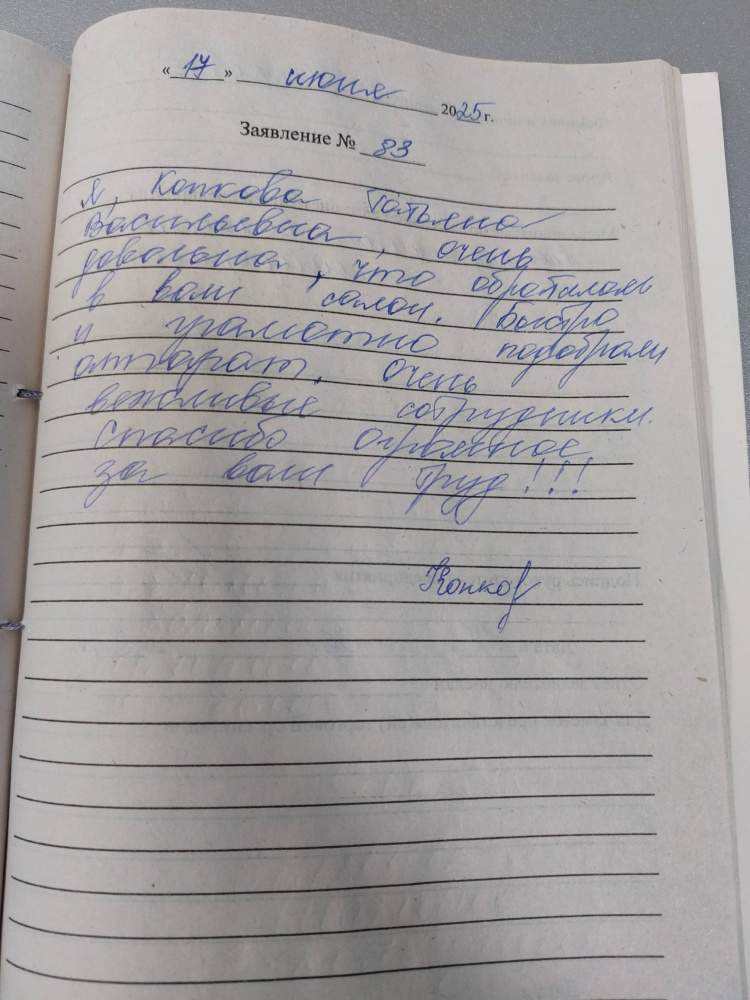 « 17 » июня 2025 г.
Заявление № 83
Я, Копкова Татьяна
Васильевна, очень
довольна, что обратилась
в ваш салон. Быстро
и грамотно подобрали
аппарат. Очень
вежливые сотрудники.
Спасибо огромное
за ваш труд!!!